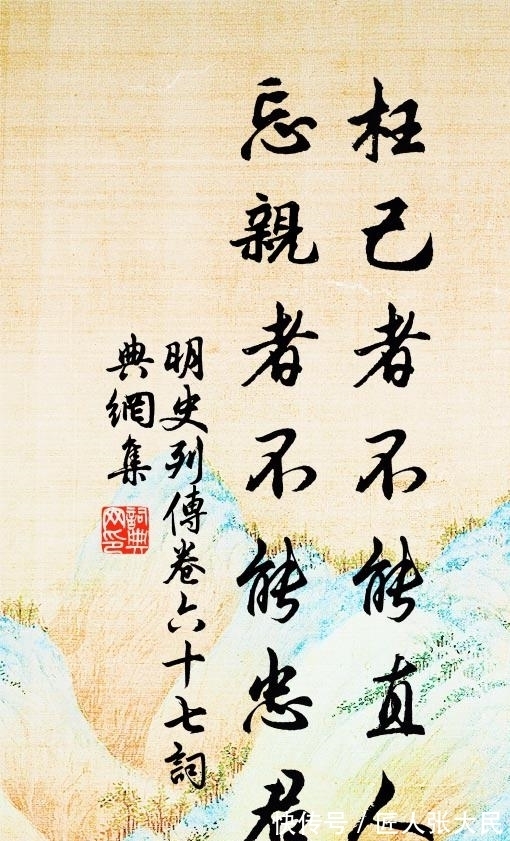 枉己者不能直人
忘親者不能忠君
明史列傳卷六十七詞
典網集
詞典
网印
快传号/匠人张大民